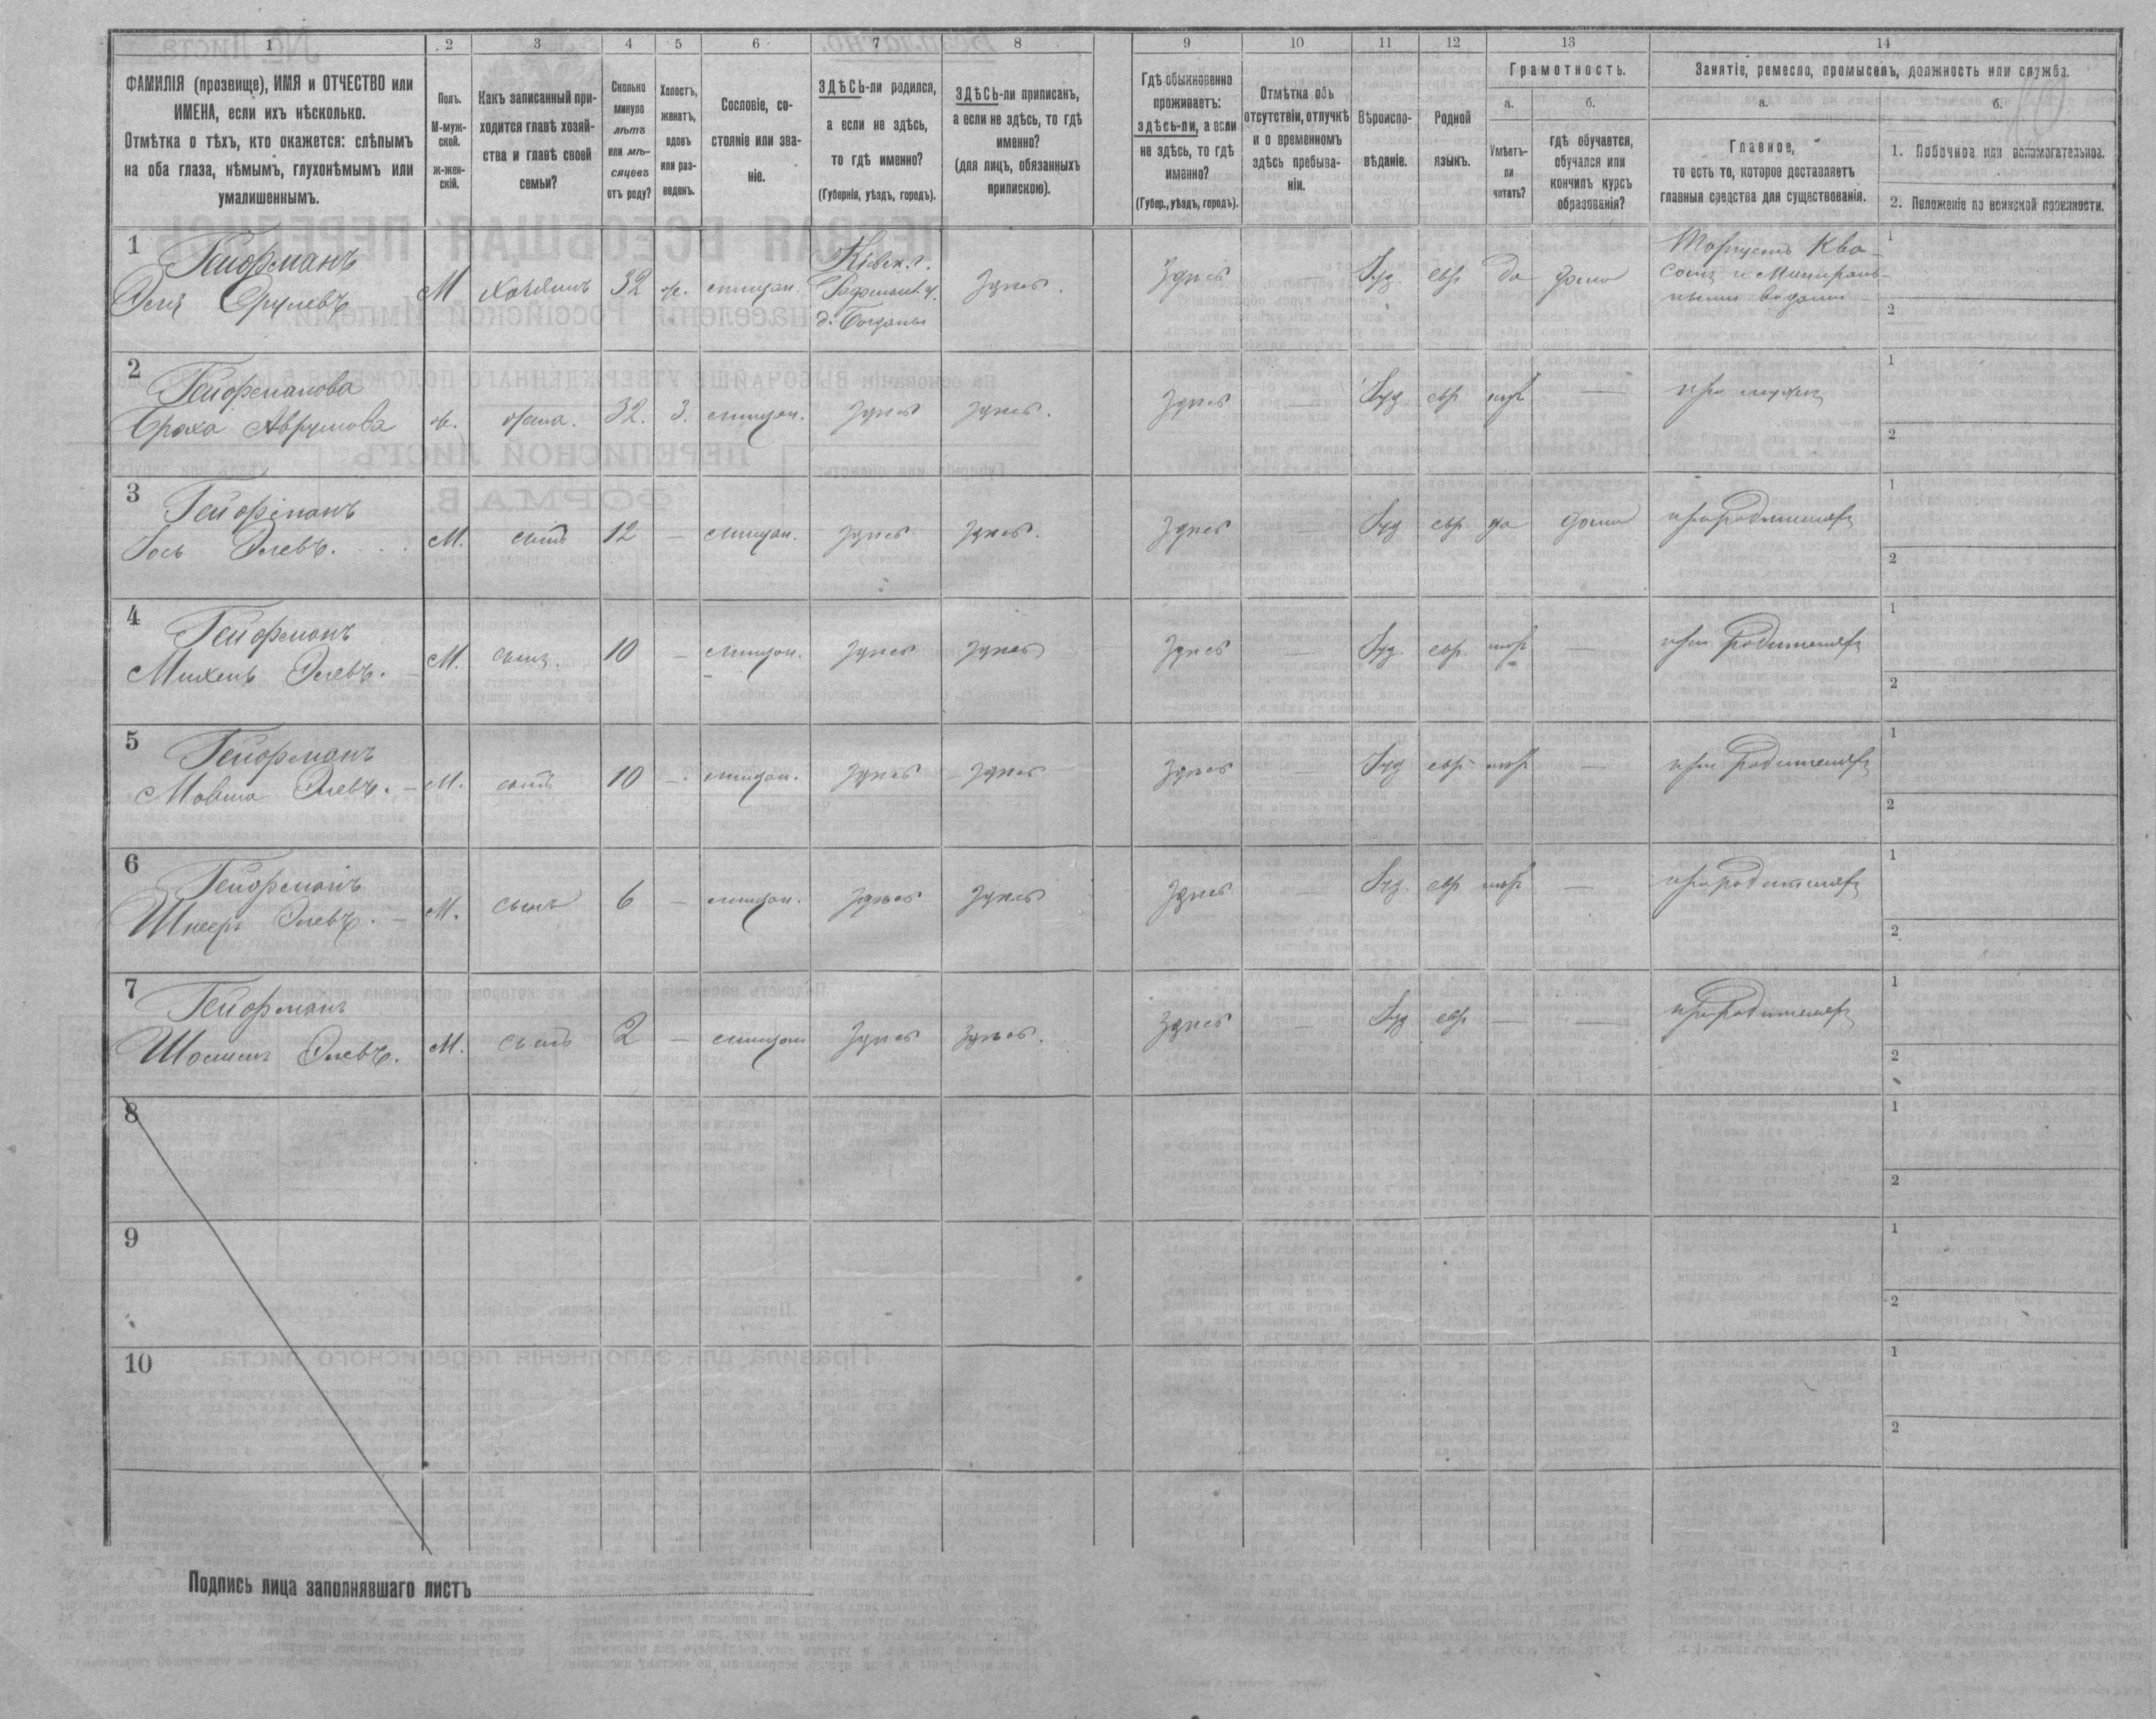 1 2 3 4 5 6 7 8 9 10 11 12 13 14
ФАМИЛІЯ (прозвище), ИМЯ и ОТЧЕСТВО или
ИМЕНА, если ихъ нѣсколько.
Отмѣтка о тѣхъ, кто окажется: слѣпымъ
на оба глаза, нѣмымъ, глухонѣмымъ или
умалишеннымъ.
Полъ.
М-муж-
ской.
ж-жен-
скій.
Какъ записанный при-
ходится главѣ хозяй-
ства и главѣ своей
семьи?
Сколько
минуло
лѣтъ
или мѣ-
сяцевъ
отъ роду?
Холостъ,
женатъ,
вдовъ
или раз-
веденъ.
Сословіе, со-
стояніе или зва-
ніе.
ЗДѢСЬ-ли родился,
а если не здѣсь,
то гдѣ именно?
(Губернія, уѣздъ, городъ).
ЗДѢСЬ-ли приписанъ,
а если не здѣсь, то гдѣ
именно?
(для лицъ, обязанныхъ
припискою).
Гдѣ обыкновенно
проживаетъ:
здѣсь-ли, а если
не здѣсь, то гдѣ
именно?
(Губер., уѣздъ, городъ).
Отмѣтка объ
отсутствіи, отлучкѣ
и о временномъ
здѣсь пребыва-
ніи.
Вѣроиспо-
вѣданіе.
Родной
языкъ.
Грамотность.
а.
Умѣетъ-
ли
читать?
б.
гдѣ обучается,
обучался или
кончилъ курсъ
образованія?
Занятіе, ремесло, промыселъ, должность или служба.
а.
Главное,
то есть то, которое доставляетъ
главныя средства для существованія.
б.
1. Побочное или вспомогательное.
2. Положеніе по воинской повинности.
1 Гейфманъ
М Хозяинъ 32 ж. мищан. Кіевск. г.
д. Богданы
Здпсь. Здпсь — Іуд. евр да дома
Торгуетъ Ква-
сомъ и Минираль-
ными водами
1
2
2 Гейфманова
Браха Аврумова ж. жена. 32. З. мищан. Здпсь Здпсь. Здпсь — Іуд евр нѣтъ — при мужѣ
1
2
3 Гейфманъ
Іось Элевъ. М. сынъ 12 — мищан. Здпсь Здпсь. Здпсь — Іуд евр да дома при родителяхъ
1
2
4 Гейфманъ
Михель Элевъ. М. сынъ. 10 — мищан. Здпсь Здпсь Здпсь — Іуд. евр. нѣтъ — при родителяхъ
1
2
5 Гейфманъ
Мовша Элевъ. М. сынъ 10 — мищан. Здпсь Здпсь Здпсь — Іуд евр нѣтъ — при родителяхъ
1
2
6 Гейфманъ
Шнеер Элевъ. М. сынъ 6 — мищан. Здпсь Здпсь Здпсь — Іуд. евр нѣтъ — при родителяхъ
1
2
7 Гейфманъ
Элевъ. М. сынъ 2 — мищан Здпсь Здпсь. Здпсь — Іуд евр — — при родителяхъ
1
2
8
1
2
9
1
2
10
1
2
Подпись лица заполнявшаго листъ